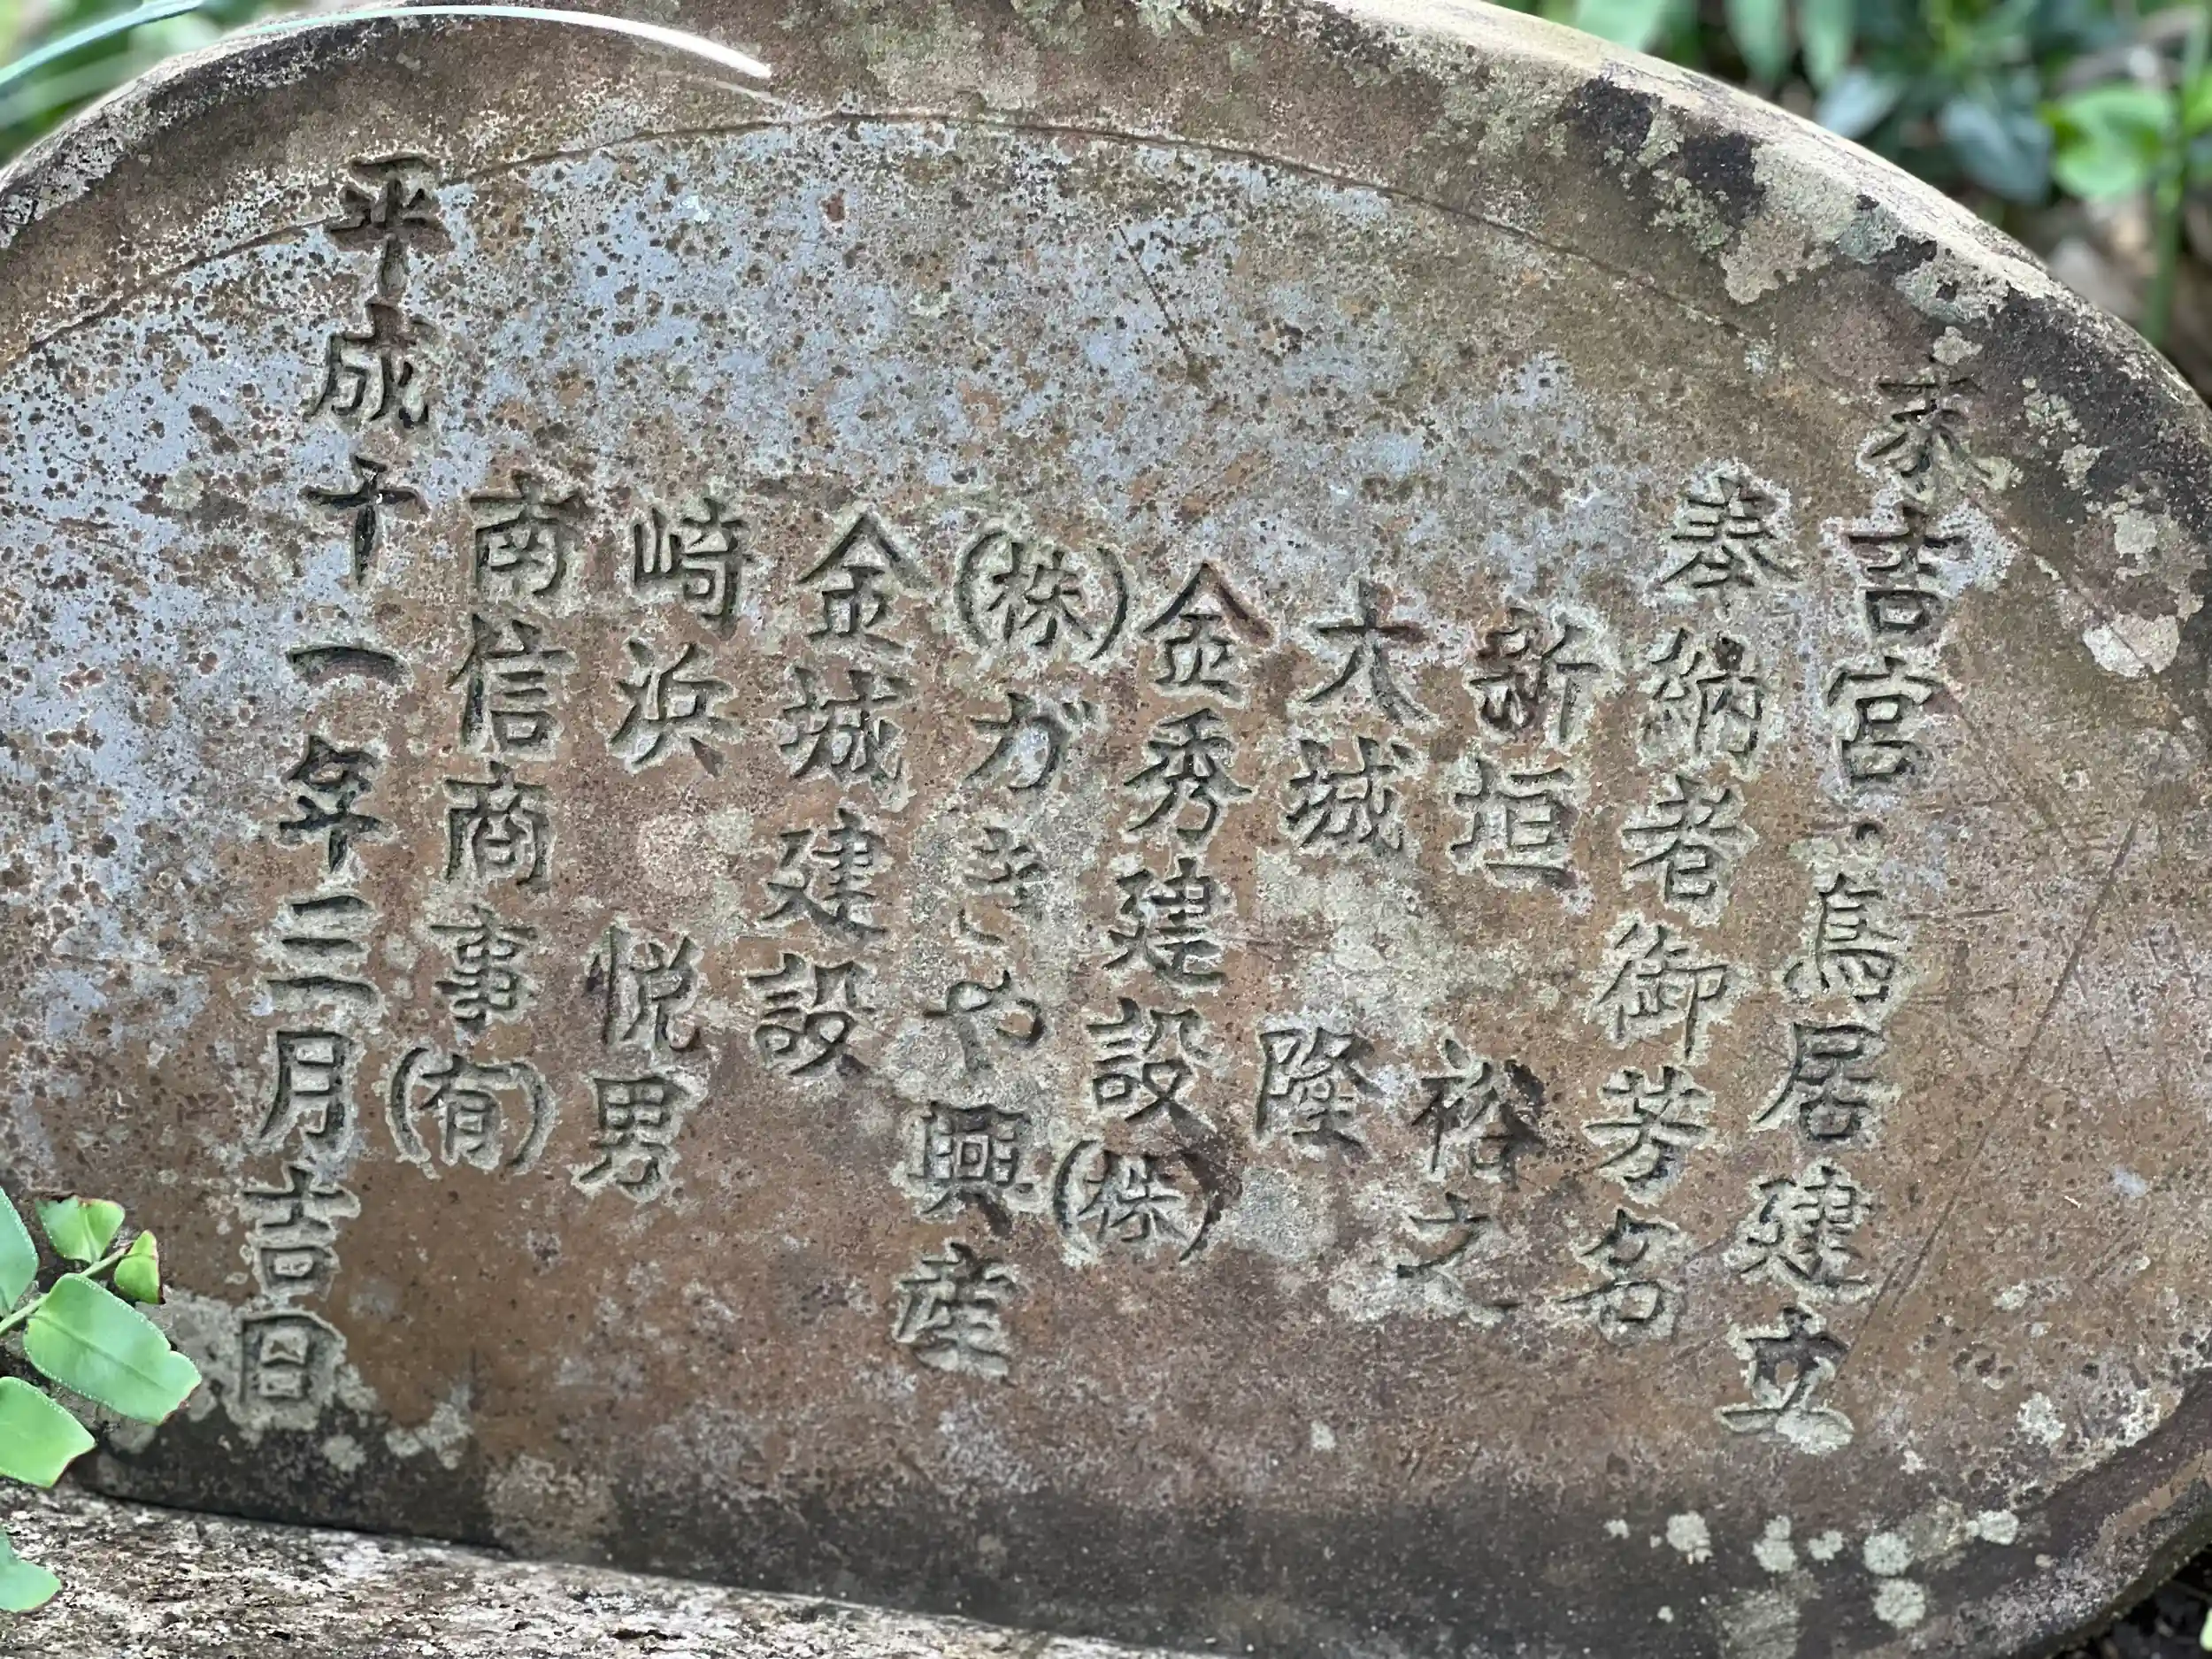 末吉宮・鳥居建立
奉納者御芳名
新垣 裕之
大城 隆
金秀建設(株)
(株)がきや興産
金城建設
崎浜 悦男
南信商事(有)
平成十一年三月吉日